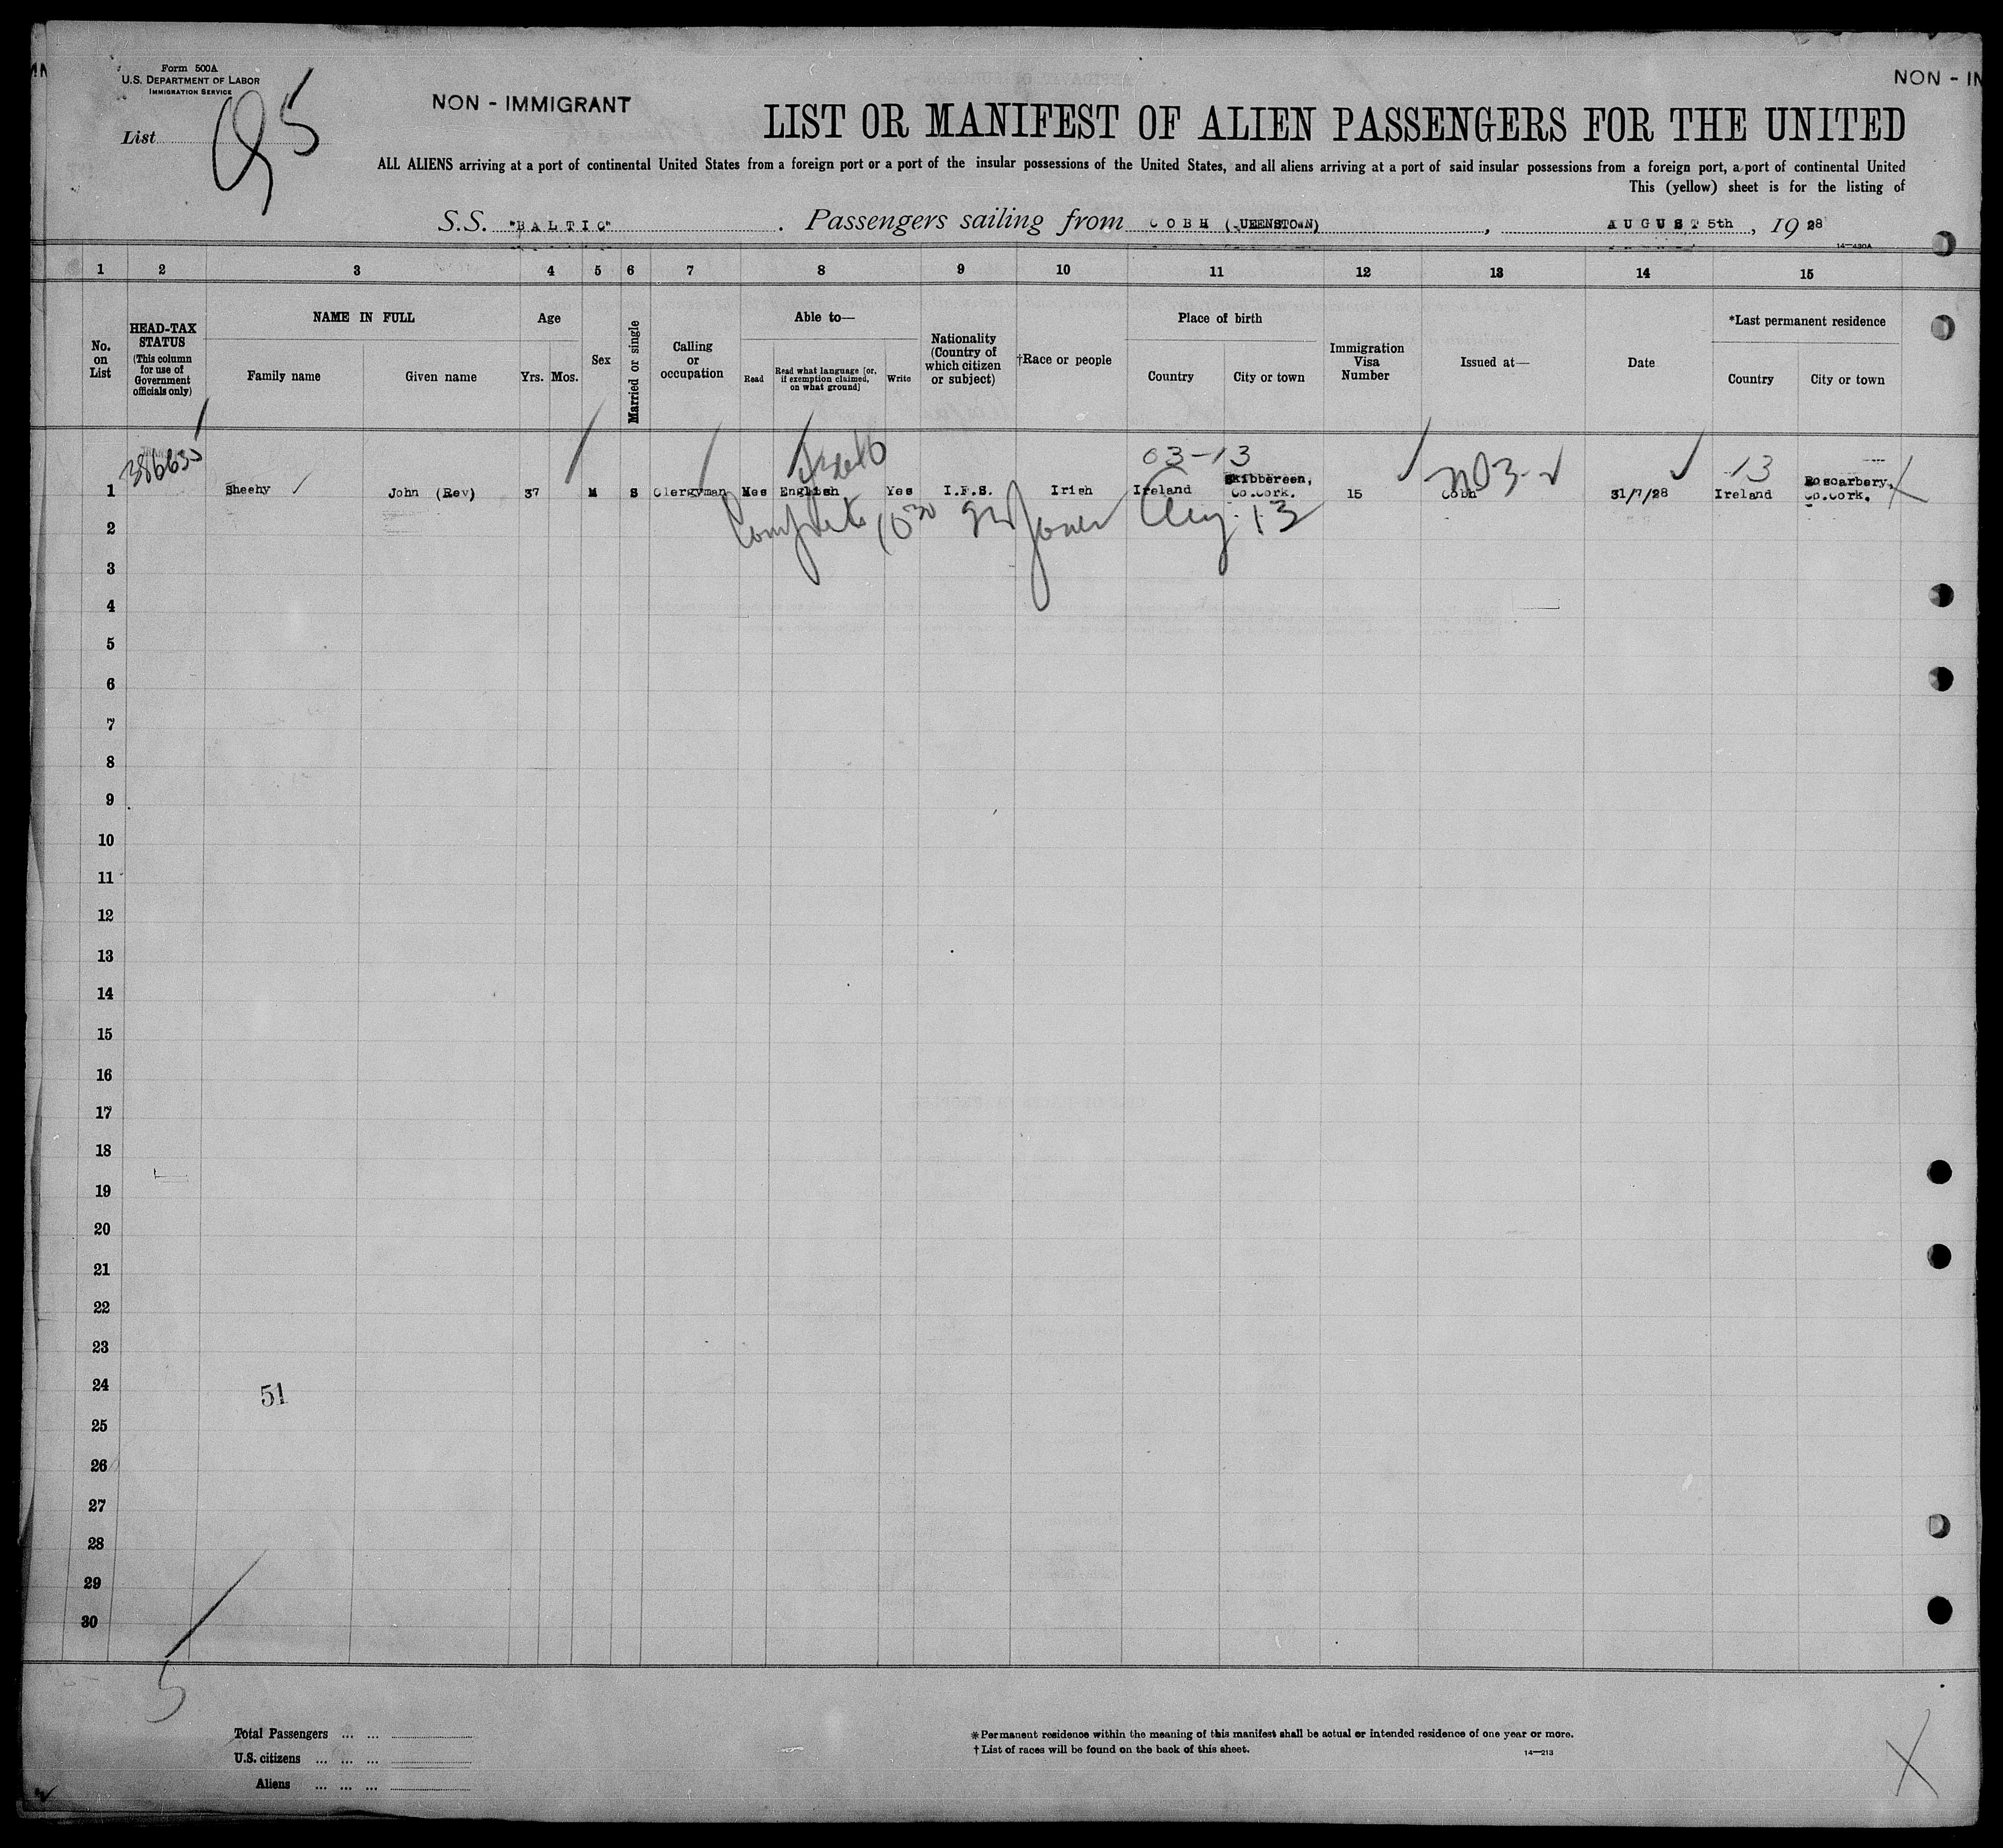 Form 500A
U.S. DEPARTMENT OF LABOR
IMMIGRATION SERVICE
List 95
NON - IMMIGRANT
NON - IN
LIST OR MANIFEST OF ALIEN PASSENGERS FOR THE UNITED
ALL ALIENS arriving at a port of continental United States from a foreign port or a port of the insular possessions of the United States, and all aliens arriving at a port of said insular possessions from a foreign port, a port of continental United
This (yellow) sheet is for the listing of
S.S. "BALTIC". Passengers sailing from COBH (QUEENSTOWN), AUGUST 5th, 1928
14—430A
1 2 3 4 5 6 7 8 9 10 11 12 13 14 15
No. on List
HEAD-TAX STATUS (This column for use of Government officials only)
NAME IN FULL
Family name
Given name
Age
Yrs. Mos.
Sex
Married or single
Calling or occupation
Able to—
Read
Read what language [or, if exemption claimed, on what ground]
Write
Nationality (Country of which citizen or subject)
†Race or people
Place of birth
Country
City or town
Immigration Visa Number
Issued at—
Date
*Last permanent residence
Country
City or town
03-13
13
1 Sheehy John (Rev) 37 M S Clergyman Yes English Yes I.F.S. Irish Ireland Skibbereen, Co.Cork. 15 Cobh 31/7/28 Ireland Roscarbery, Co.Cork.
Aug. 13
2
3
4
5
6
7
8
9
10
11
12
13
14
15
16
17
18
19
20
21
22
23
24
51
25
26
27
28
29
30
5
Total Passengers ... ...
U.S. citizens ... ... ...
Aliens ... ... ...
*Permanent residence within the meaning of this manifest shall be actual or intended residence of one year or more.
†List of races will be found on the back of this sheet.
14—213